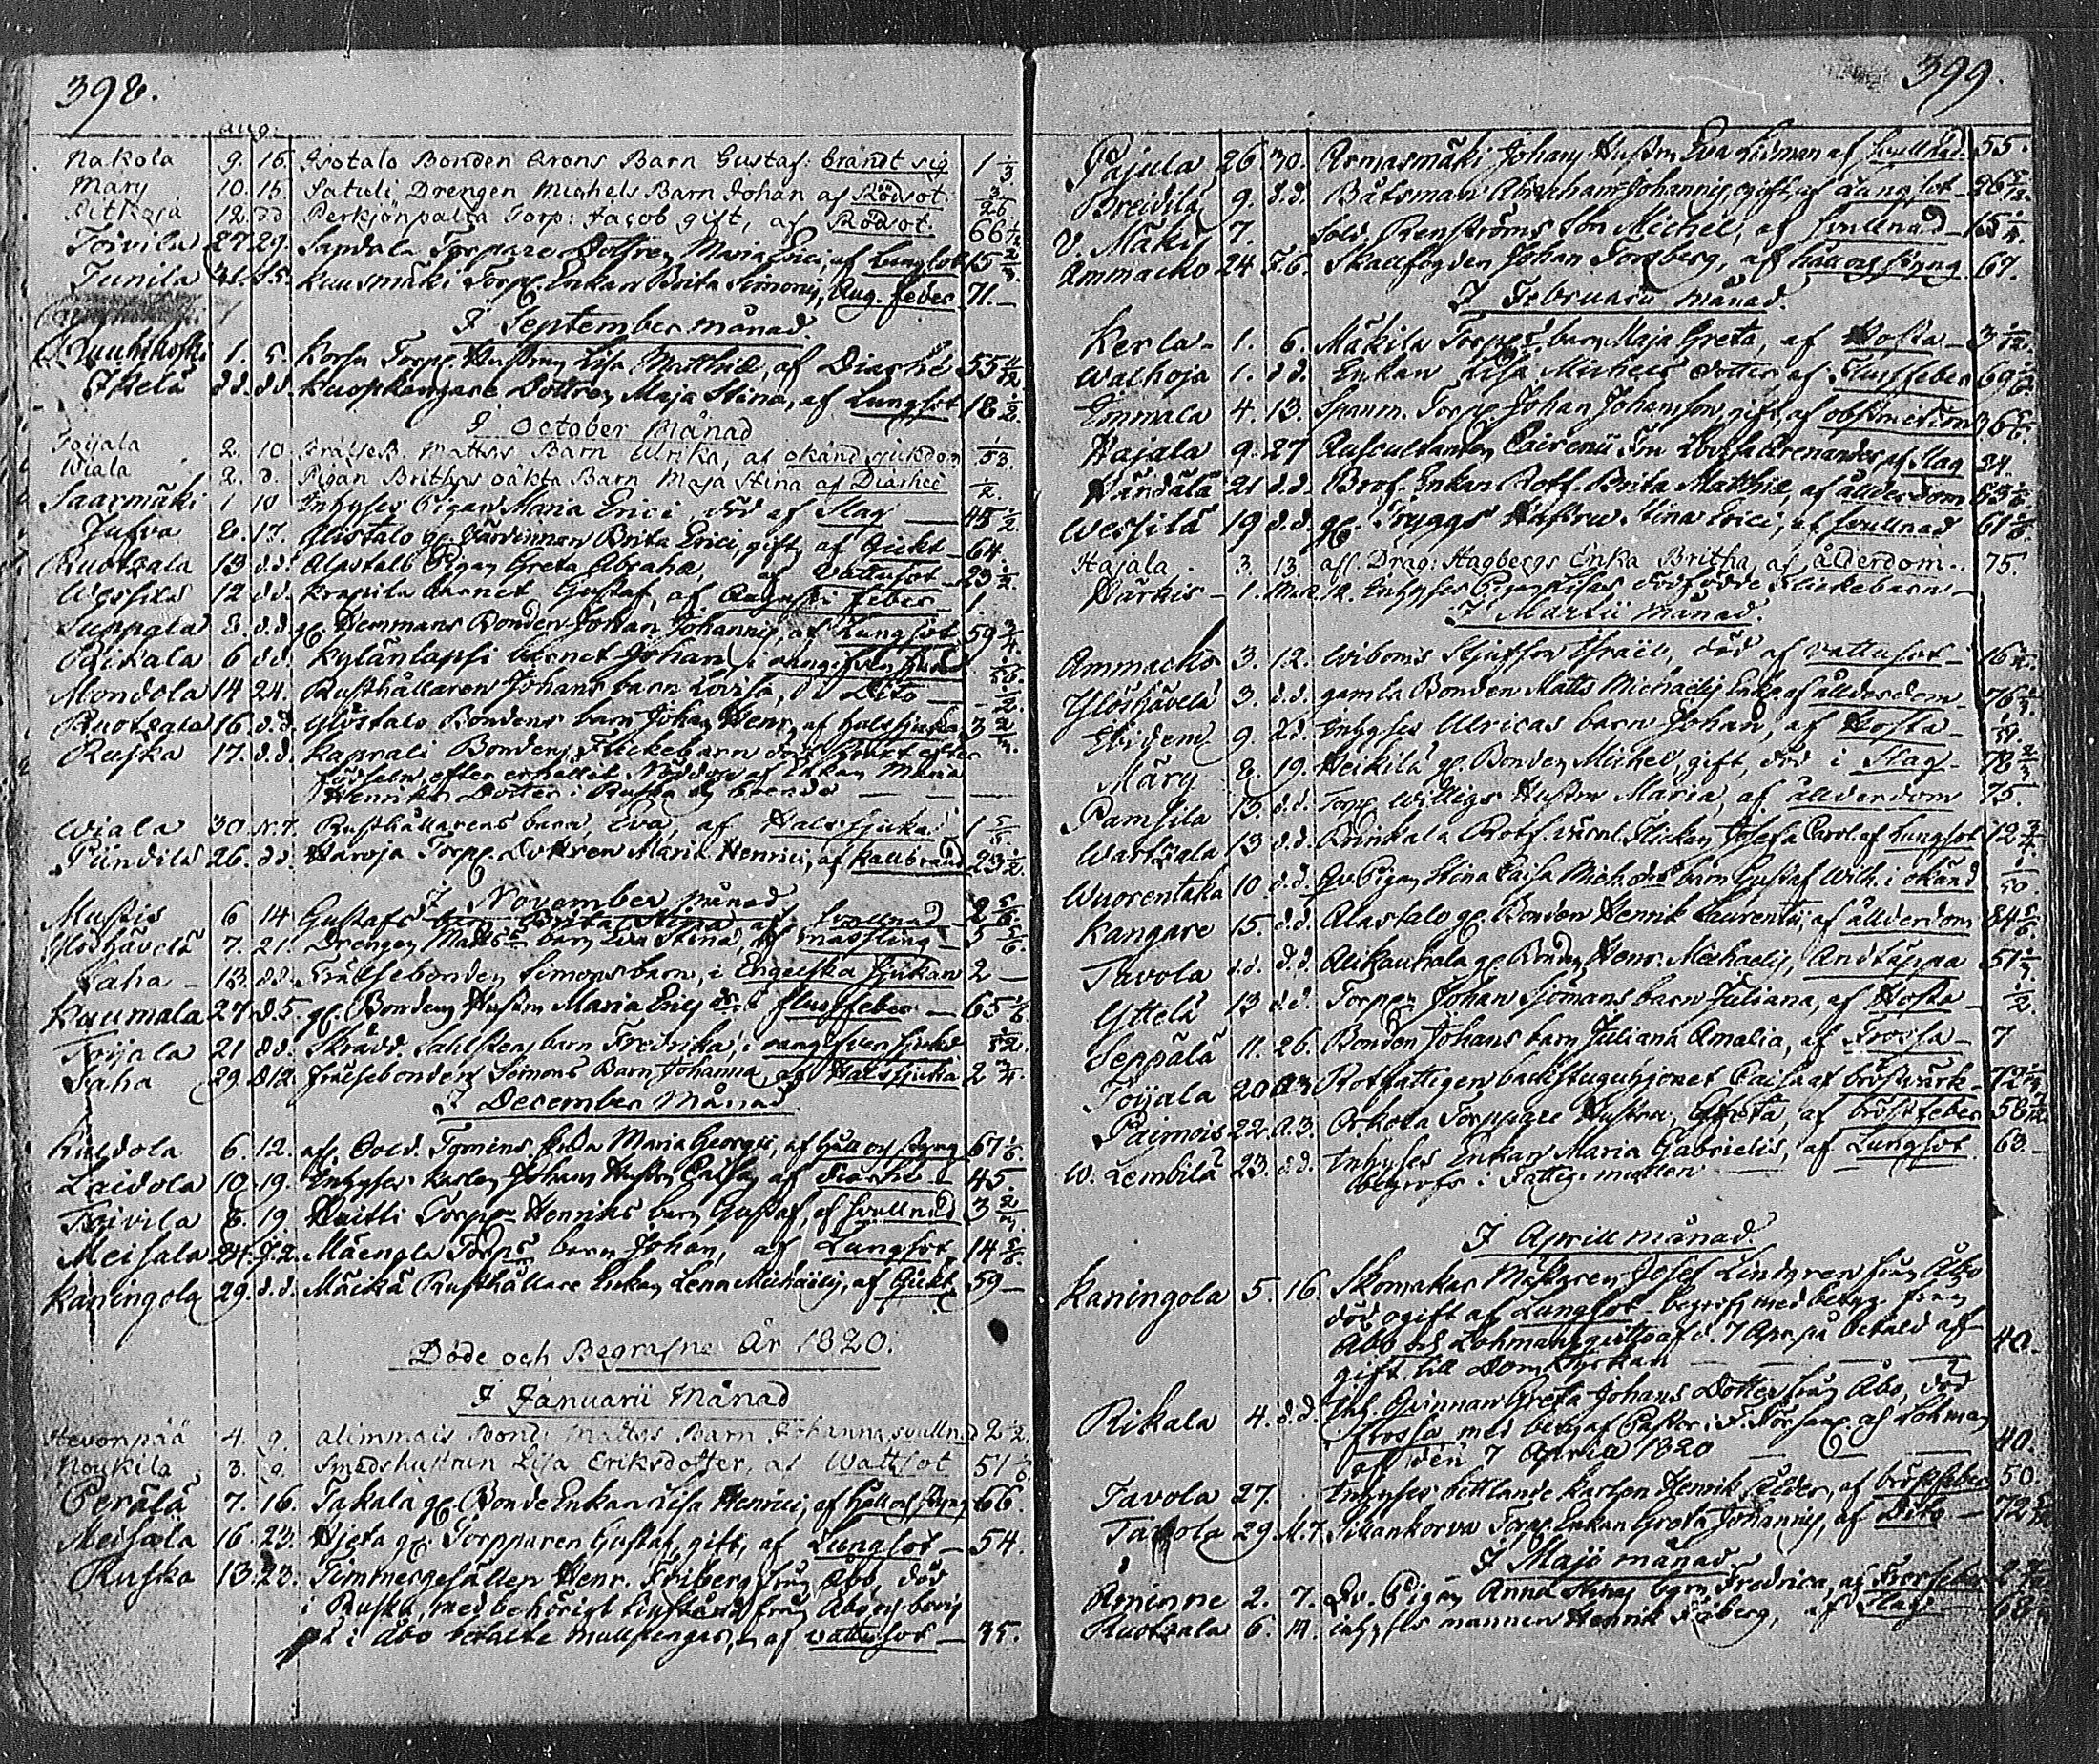 398.
aug.
Nakola 9. 16. Isotalo Bonden Arons Barn Gustaf: brandt sig 1 1/3
Märy 10. 15. Satuli Drengen Michels Barn Johan af Rödsot.
Pitkejä 12. dd Perkjönpalta Torp: Jacob gift, af Rödsot. 66
Toivila 27. 29. Sandala Torpare Dottren Maria Erici, af Lungsot 15
Junila 31. Kuusmäki Torp. Enkan Brita Simonis, Aug. feber 71. —
I September månad.
1. 5. Korfu Torp. Hustrun Lisa Matthiæ, af Diarhé 55
Ihelä dd. dd. Kuopkangare Dottren Maja Stina, af Lungsot 18 1/2.
I October Månad
Toijala 2. 10 FrälseB. Matts Barn Ulrika, af okänd sjukdom
Wiala 2. d. Pigan Brithas oäkta Barn Maja Stina af Diarhee 1/2.
Saarmäki 1 10 Inhyses Pigan Maria Erici död af Slag — 45 1/2
Jufva 8. 17. Alistalo gl. Värdinnan Brita Erici, gift, af Gickt — 64.
Ruotzala 13 dd. Alastalo Pigan Greta Abrahæ, af Vattusot — 23 1/2.
12 dd. Krapila barnet Gustaf, af Augusti feber 1.
8. d.d. gl. Hemmans Bonden Johan Johannis, af Lungsot 59 3/4
Paikala 6 dd. Kylänlapsi barnet Johan, i oangifven sjukd
Mondola 14 24. Rusthållaren Johans barn Lovisa, i Dito — 1/2.
Ruotzala 16. d.d. Ylöstalo Bondens barn Johan Henr. af halssjuka 3
Ruska 17. d.d. Kaprali Bondens Flickebarn dödt efter
födseln, efter erhållit Nöddop af Enkan Maria
Henriks Dotter i Ruska by boende — —
Wiala 30. N. 7. Rusthållarens barn, Eva, af Halssjuka 1
Pündilä 26. dd. Haroja Torp. Dottren Maria Henrici, af kallbrand 23 1/2.
I November månad
Mustis 6 14. Gustafs barn Brita Stina af Svullnad — 2
Ylöshävelä 7. 21. Drengen Matts barn Eva Stina, af mässling — 5
Saha — 13. dd. Frälsebonden Simons barn, i Engelska sjukan 2 —
Kuumala 27. D. 5. gl. Bondens Hustru Maria Erici i flussfeber — 65
Toijala 21 dd. Skrädd. Sahlsten barn Fredrika, i oangifven sjukd
Saha 29. D12. frälsebonden Simons Barn Johanna af Halssjuka 2
I December Månad.
Kuldola 6. 12. afl. Sold. Tamins Enka Maria Georgii, af håll och styng 67
Laidola 10. 19. Inhyses Karlen Johans Hustru Caisa, af Diarhé — 45.
Toivila 8. 19. Knitti Torp. Henriks barn Gustaf, af svullnad 3
Meisala 24. J. 2. Mäengla Torp. barn Johan, af Lungsot 14
Kaningola 29. d.d. Mäickä Rusthållare Enkan Lena Michaëlis, af Gickt 59 —
Döde och Begrafne År 1820.
I Januarii Månad
Hevonpää 4. 9. Alimmais Bond: Matts Barn Johanna svullnad 2 1/2.
Noukila 3. 9. Smedshustrun Lisa Eriksdotter, af Wattsot 51
Perälä 7. 16. Takala gl. Bonde Enkan Lisa Henrici, af håll och styng 66.
Meisala 16. 23. Hjeta gl. Torpparen Gustaf, gift, af Lungsot — 54.
Ruska 13. 23. Timmergesällen Henr. Friberg från Åbo död
i Ruska, med behörigt tilstånd från Åbo och bevis
på i Åbo betalte mullpengar, af vattusot — 35.
399.
Pajula 26 30. Armasmäki Johans Hustru Eva Lidman af svullnad 55.
Breidilä 9. d.d. Båtsman Abraham Johannis, gift, af Lungsot — 36
V. Mäki 7. Sold. Renströms Son Michel, af svullnad — 15
Ammacko 24 F. 6. Skallfogden Johan Forsberg, af håll och styng 67.
I Februarii månad.
Kerla — 1. 6. Mäkila Torp. barn Maja Greta, af Hosta — 3
Walhoja 1. d.d. Enkan Lisa Michels dotter af Flussfeber 69
Emmala 4. 13. Spanm. Torp. Johan Johansson, gift, af obstruction 36
Hajala 9. 27 Auscultanten Cairenii Fru Lovisa Arenander af Slag 34.
Händälä 21 d.d. Prof. Enkan Rotf. Brita Matthiæ, af ålderdom 83
Wessilä 19 d.d. gl. Tryggs Hustru Stina Erici, af svullnad 61
Hajala. 3. 13. afl. Drag: Hagbergs Enka Britha, af ålderdom.. 75.
Härkis — 1. Inhyses Pigan Lisas dödfödde Flickebarn —
I Martii månad.
Ammacko 3. 12. Wiboms Styfson Israël, död af vattusot — 16
Ylöshävelä 3. d.d. gamla Bonden Matts Michaëlis Enka af ålderdom 76
Ibidem 9. 2d. Inhyses Ulricas barn Johan, af Hosta —
Märy 8. 19. Heikilä gl. Bonden Michel, gift, död i Slag — 78
Pamsila 13. d.d. Torp. Willigs Hustru Maria, af ålderdom 75.
Wartzala 13 d.d. Brinkala Rotf. värnl. Flickan Josefa Carol. af Lungsot 12
Wuorentaka 10 d.d. Qv. Pigan Stina Caisa Mich. dr barn Gustaf Wilh. i okänd
Kangare 15. d.d. Alastalo gl. Bonden Henrik Laurentii, af ålderdom 84
Tavola d.d. d.d. Alikauhala gl. Bonden Henr. Michaelis, Andtäppa 51
Yttelä 13 dd. Torp. Johan Sjömans barn Juliana, af Hosta — 1/2.
Seppälä 11. 26. Bonden Johans barn Juliana Amalia, af Frossa — 7
Toijala 20 A3. Rotfattigen backstuguhjonet Caisa af bröstvärk — 72
Paimois 22. A. 3. Orkola Torppare Hustru Greta, af bröstfeber 58
W. Lembilä 23. d.d. Inhyses Enkan Maria Gabrielis, af Lungsot 63. —
begrofs i Fattig-mullen
I Aprill månad.
Kaningola 5. 16. Skomakar Mästaren Josef Lindgren från Åbo
död ogift af Lungsot — begrofs med betyg från
Åbo och Lohmans quitto af d. 7 Apr. på betald af-
gift till Domkyrkan — — — 40.
Rikala 4. d.d. Inh. Qvinnan Greta Johans Dotter från Åbo, död
i frossa med betyg af Pastor i och Lohman
af den 7 Aprill 1820 — 40.
Tavola 27. Inhyses bittlande karlen Henrik Ålder, af bröstfeber 50.
Tavola 29. M. 7. Sillankorva Torp. Enkan Greta Johannis, af Dito — 72
I Maji månad.
Åminne 2. 7. Qv. Pigan Anna Stinas barn Fredrica, af
Ruotzala 6. 14. inhyses mannen Henrik af Slag — 68